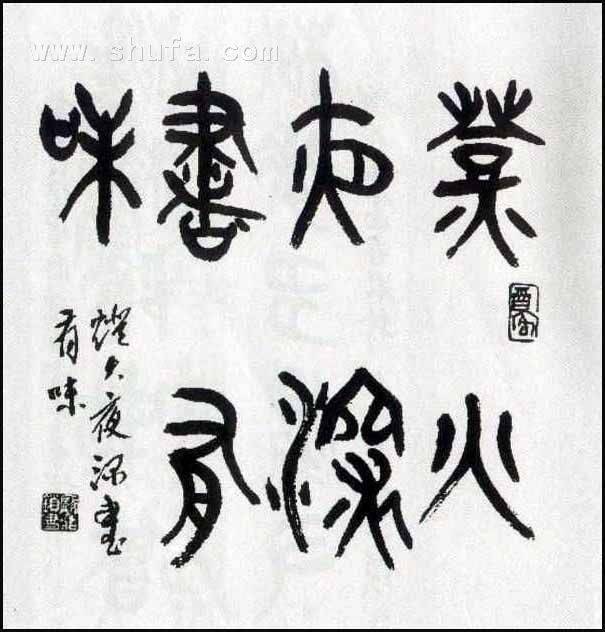 www.shufa.com
燈火
夜深
書有
味
燈火夜深書
有味